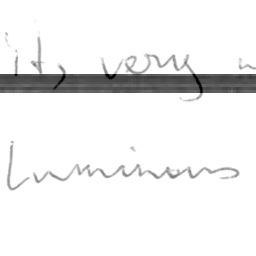 it, very
luminous